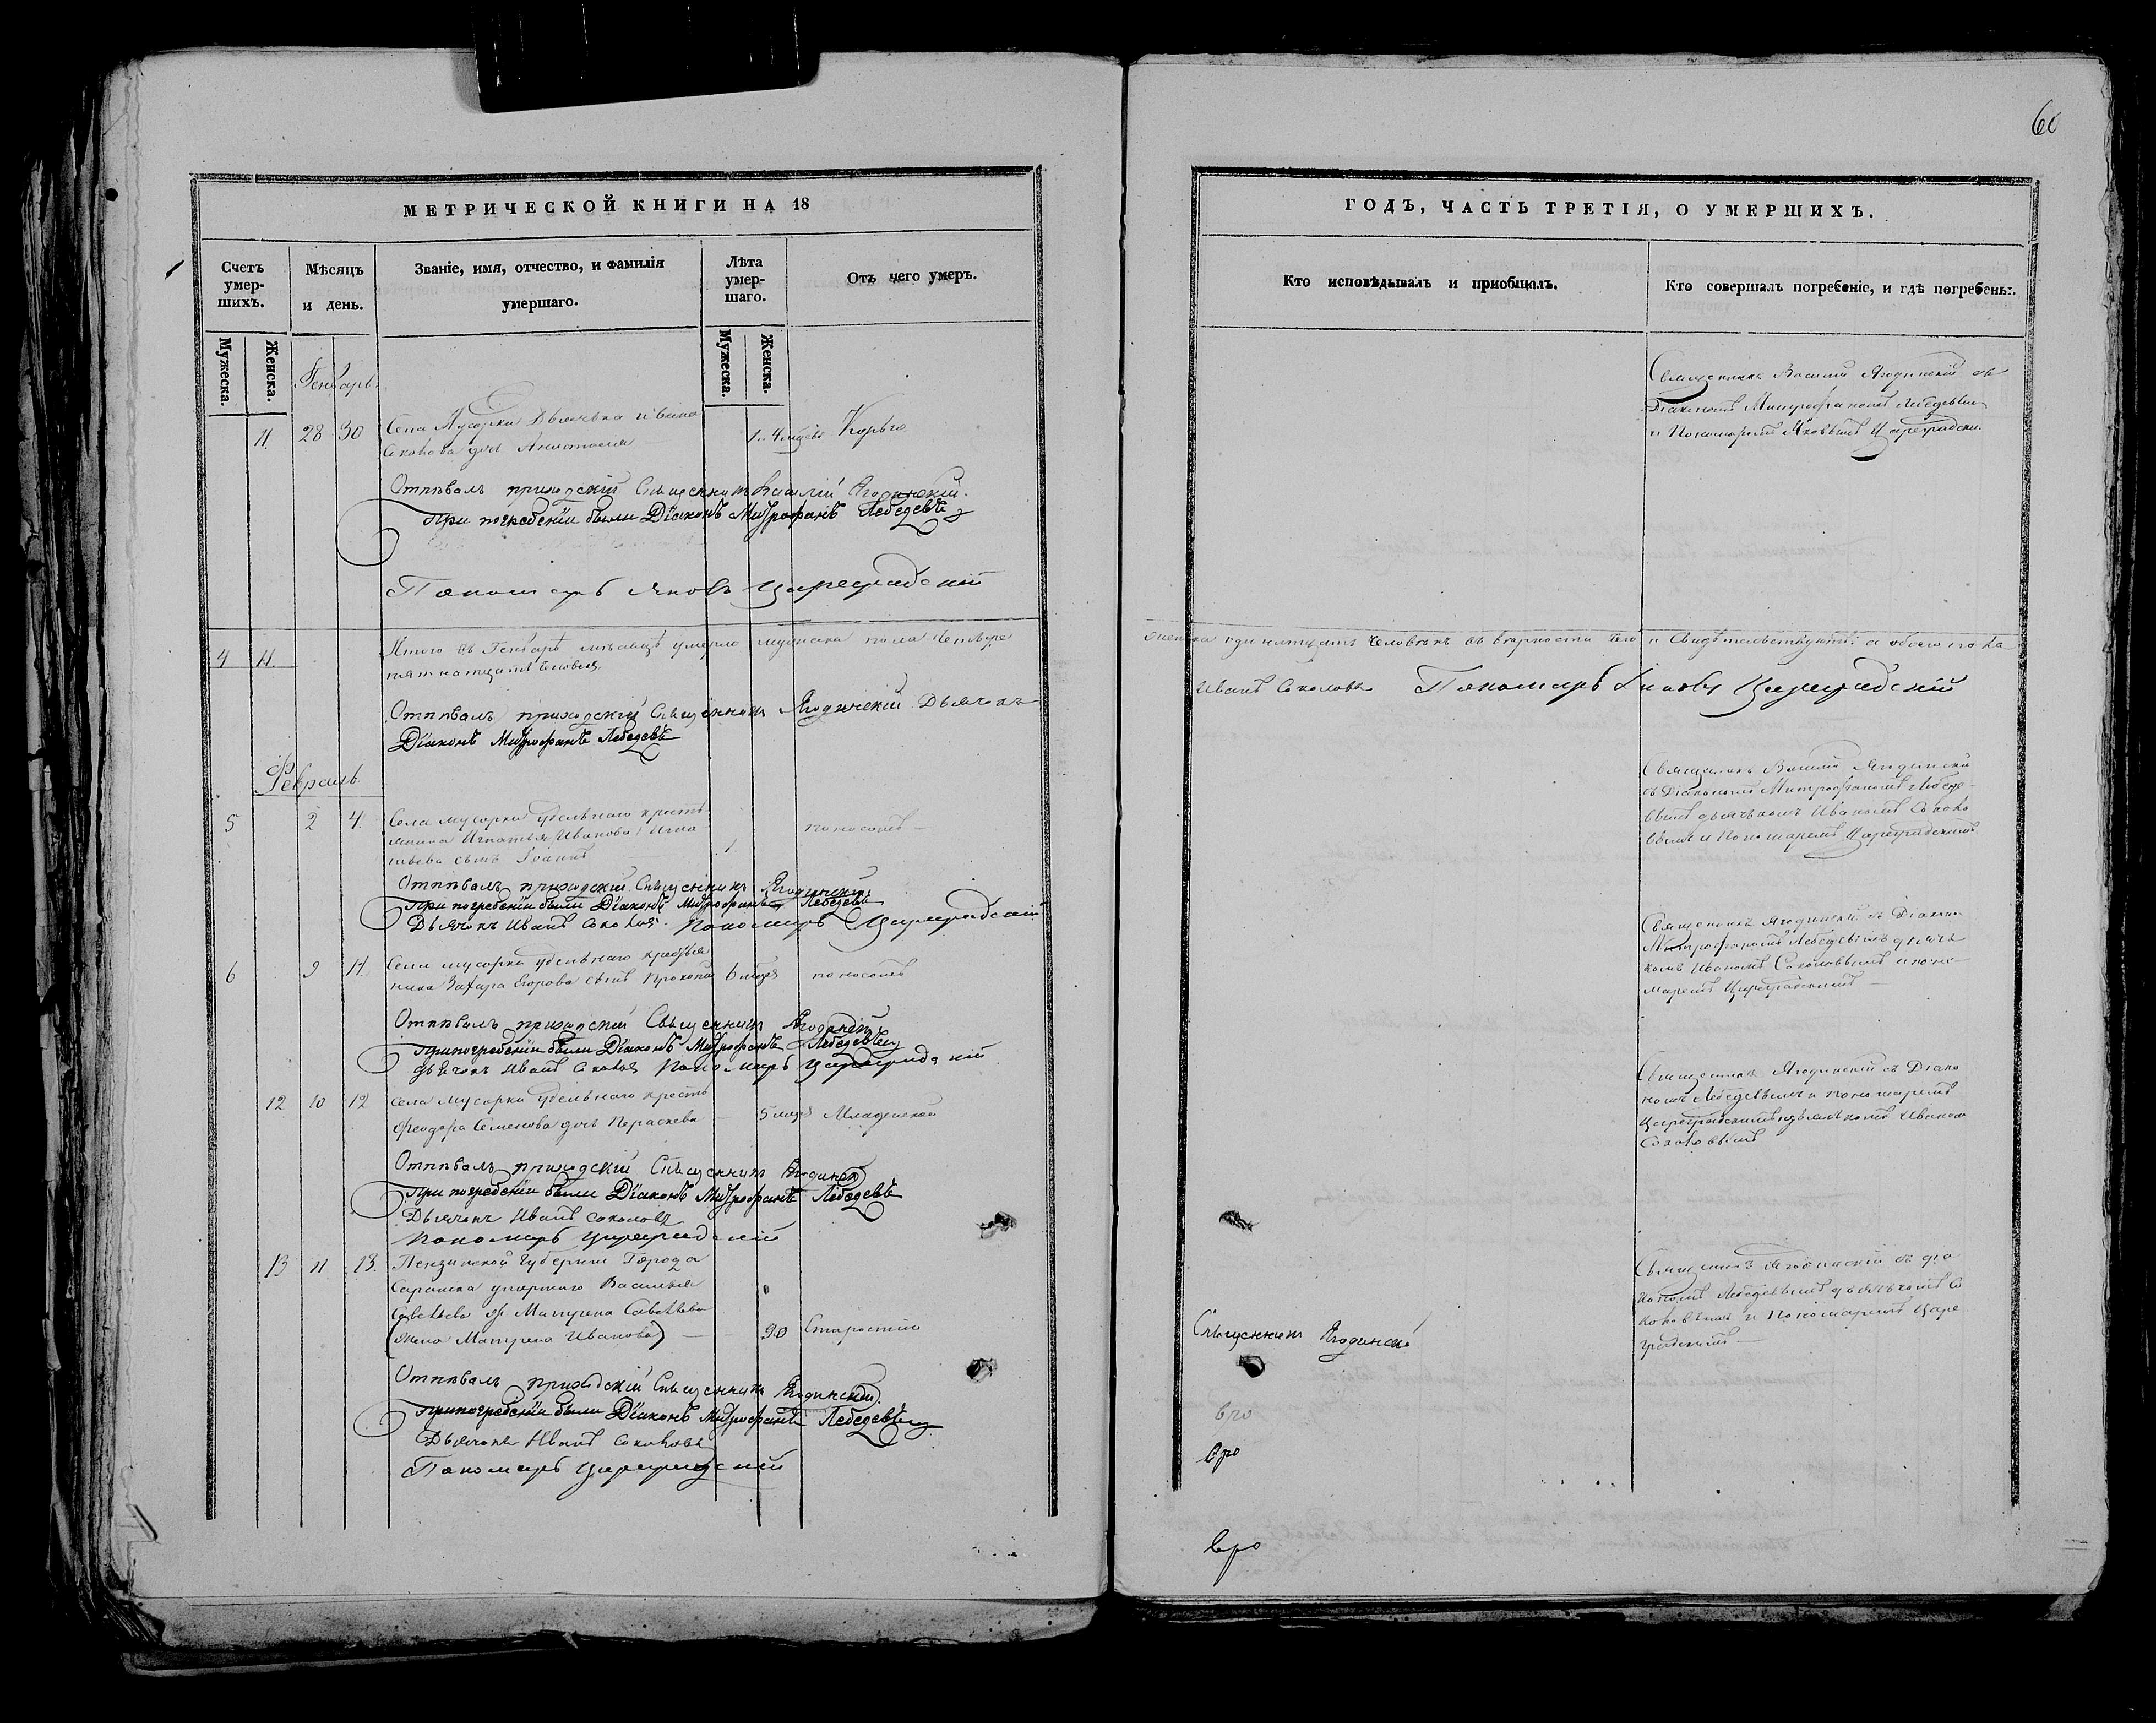 60
МЕТРИЧЕСКОЙ КНИГИ НА 18
Счетъ умер-шихъ.
Мѣсяцъ и день.
Званіе, имя, отчество, и фамилія умершаго.
Лѣта умер-шаго.
Отъ чего умеръ.
Мужеска.
Женска.
Мужеска.
Женска.
Генварь
11 28 30 Села Мусорки Дьячька Ивана
Соколова дочь Анастасия 1. 4 мцсвъ Корью
Отпѣвалъ приходскій Священникъ Василій Ягодинскій.
При погребеніи были Діаконъ Митрофанъ Лебедевъ
Пономарь Яковъ Цареградскій
4 11 Итого въ Генварѣ мѣсяцѣ умерло мужеска пола четыре
пятнатцать человекъ
Отпѣвалъ приходскій Священникъ Ягодинскій Дьячокъ
Діаконъ Митрофанъ Лебедевъ
Февраль
5 2 4. Села Мусорки удельнаго кресть
янина Игнатья Иванова Игна-
тьева сынъ Іоаннъ 1 поносомъ
Отпѣвалъ приходскій Священникъ Ягодинскій
При погребеніи были Діаконъ Митрофанъ Лебедевъ
Дьячокъ Иванъ Соколовъ Пономарь Цареградскій
6 9 11. Села Мусорки удельнаго
Захара Егорова сынъ Прокопій 6 мцсв поносомъ
Отпѣвалъ приходскій Священникъ Ягодинскій
При погребеніи были Діаконъ Митрофанъ Лебедевъ
Дьячокъ Иванъ Соколовъ Пономарь Цареградскій
12 10 12 Села Мусорки удельнаго кресть
Феодора Семенова дочь Параскева 5 мцсв Младенской
Отпѣвалъ приходскій Священникъ Ягодинскій
При погребеніи были Діаконъ Митрофанъ Лебедевъ
Дьячокъ Иванъ Соколовъ
Пономарь Цареградскій
13 11 13. Пензинской Губернии Города
Саранска умершаго Василья
Савельева Матрена Савельева
(жена Матрена Иванова) 90 Старостию
Отпѣвалъ приходскій Священникъ Ягодинскій.
При погребеніи были Діаконъ Митрофанъ Лебедевъ
Дьячокъ Иванъ Соколовъ
Пономарь Цареградскій
ГОДЪ, ЧАСТЬ ТРЕТІЯ, О УМЕРШИХЪ.
Кто исповѣдывалъ и пріобщалъ.
Кто совершалъ погребеніе, и гдѣ погребены.
Священникъ Василій Ягодинскій съ
Діакономъ Митрофаномъ Лебедевым
и Пономаремъ Яковымъ Цареградски.
женска одинатцать человекъ въ верности чего и свидѣтельствуютъ: а обоего пола
Иванъ Соколовъ Пономарь Яковъ Цареградскій
Священникъ Василій Ягодински
съ Діакономъ Митрофаномъ Лебеде-
вымъ дьячькомъ Иваномъ Соколо
вымъ и Пономаремъ Цареградскимъ
Священникъ Ягодинскій съ Діакон
Митрофаномъ Лебедевымъ дьячь
комъ Иваномъ Соколовымъ и поно-
маремъ Цареградскимъ
Священникъ Ягодинскій съ Діако
номъ Лебедевымъ и пономаремъ
Цареградскимъ и дьячькомъ Иваном
Соколовымъ
Священникъ Ягодинскій съ діа
кономъ Лебедевымъ дьячькомъ Со
коловымъ и Пономаремъ Царе
градскимъ
Священникъ Ягодинскі